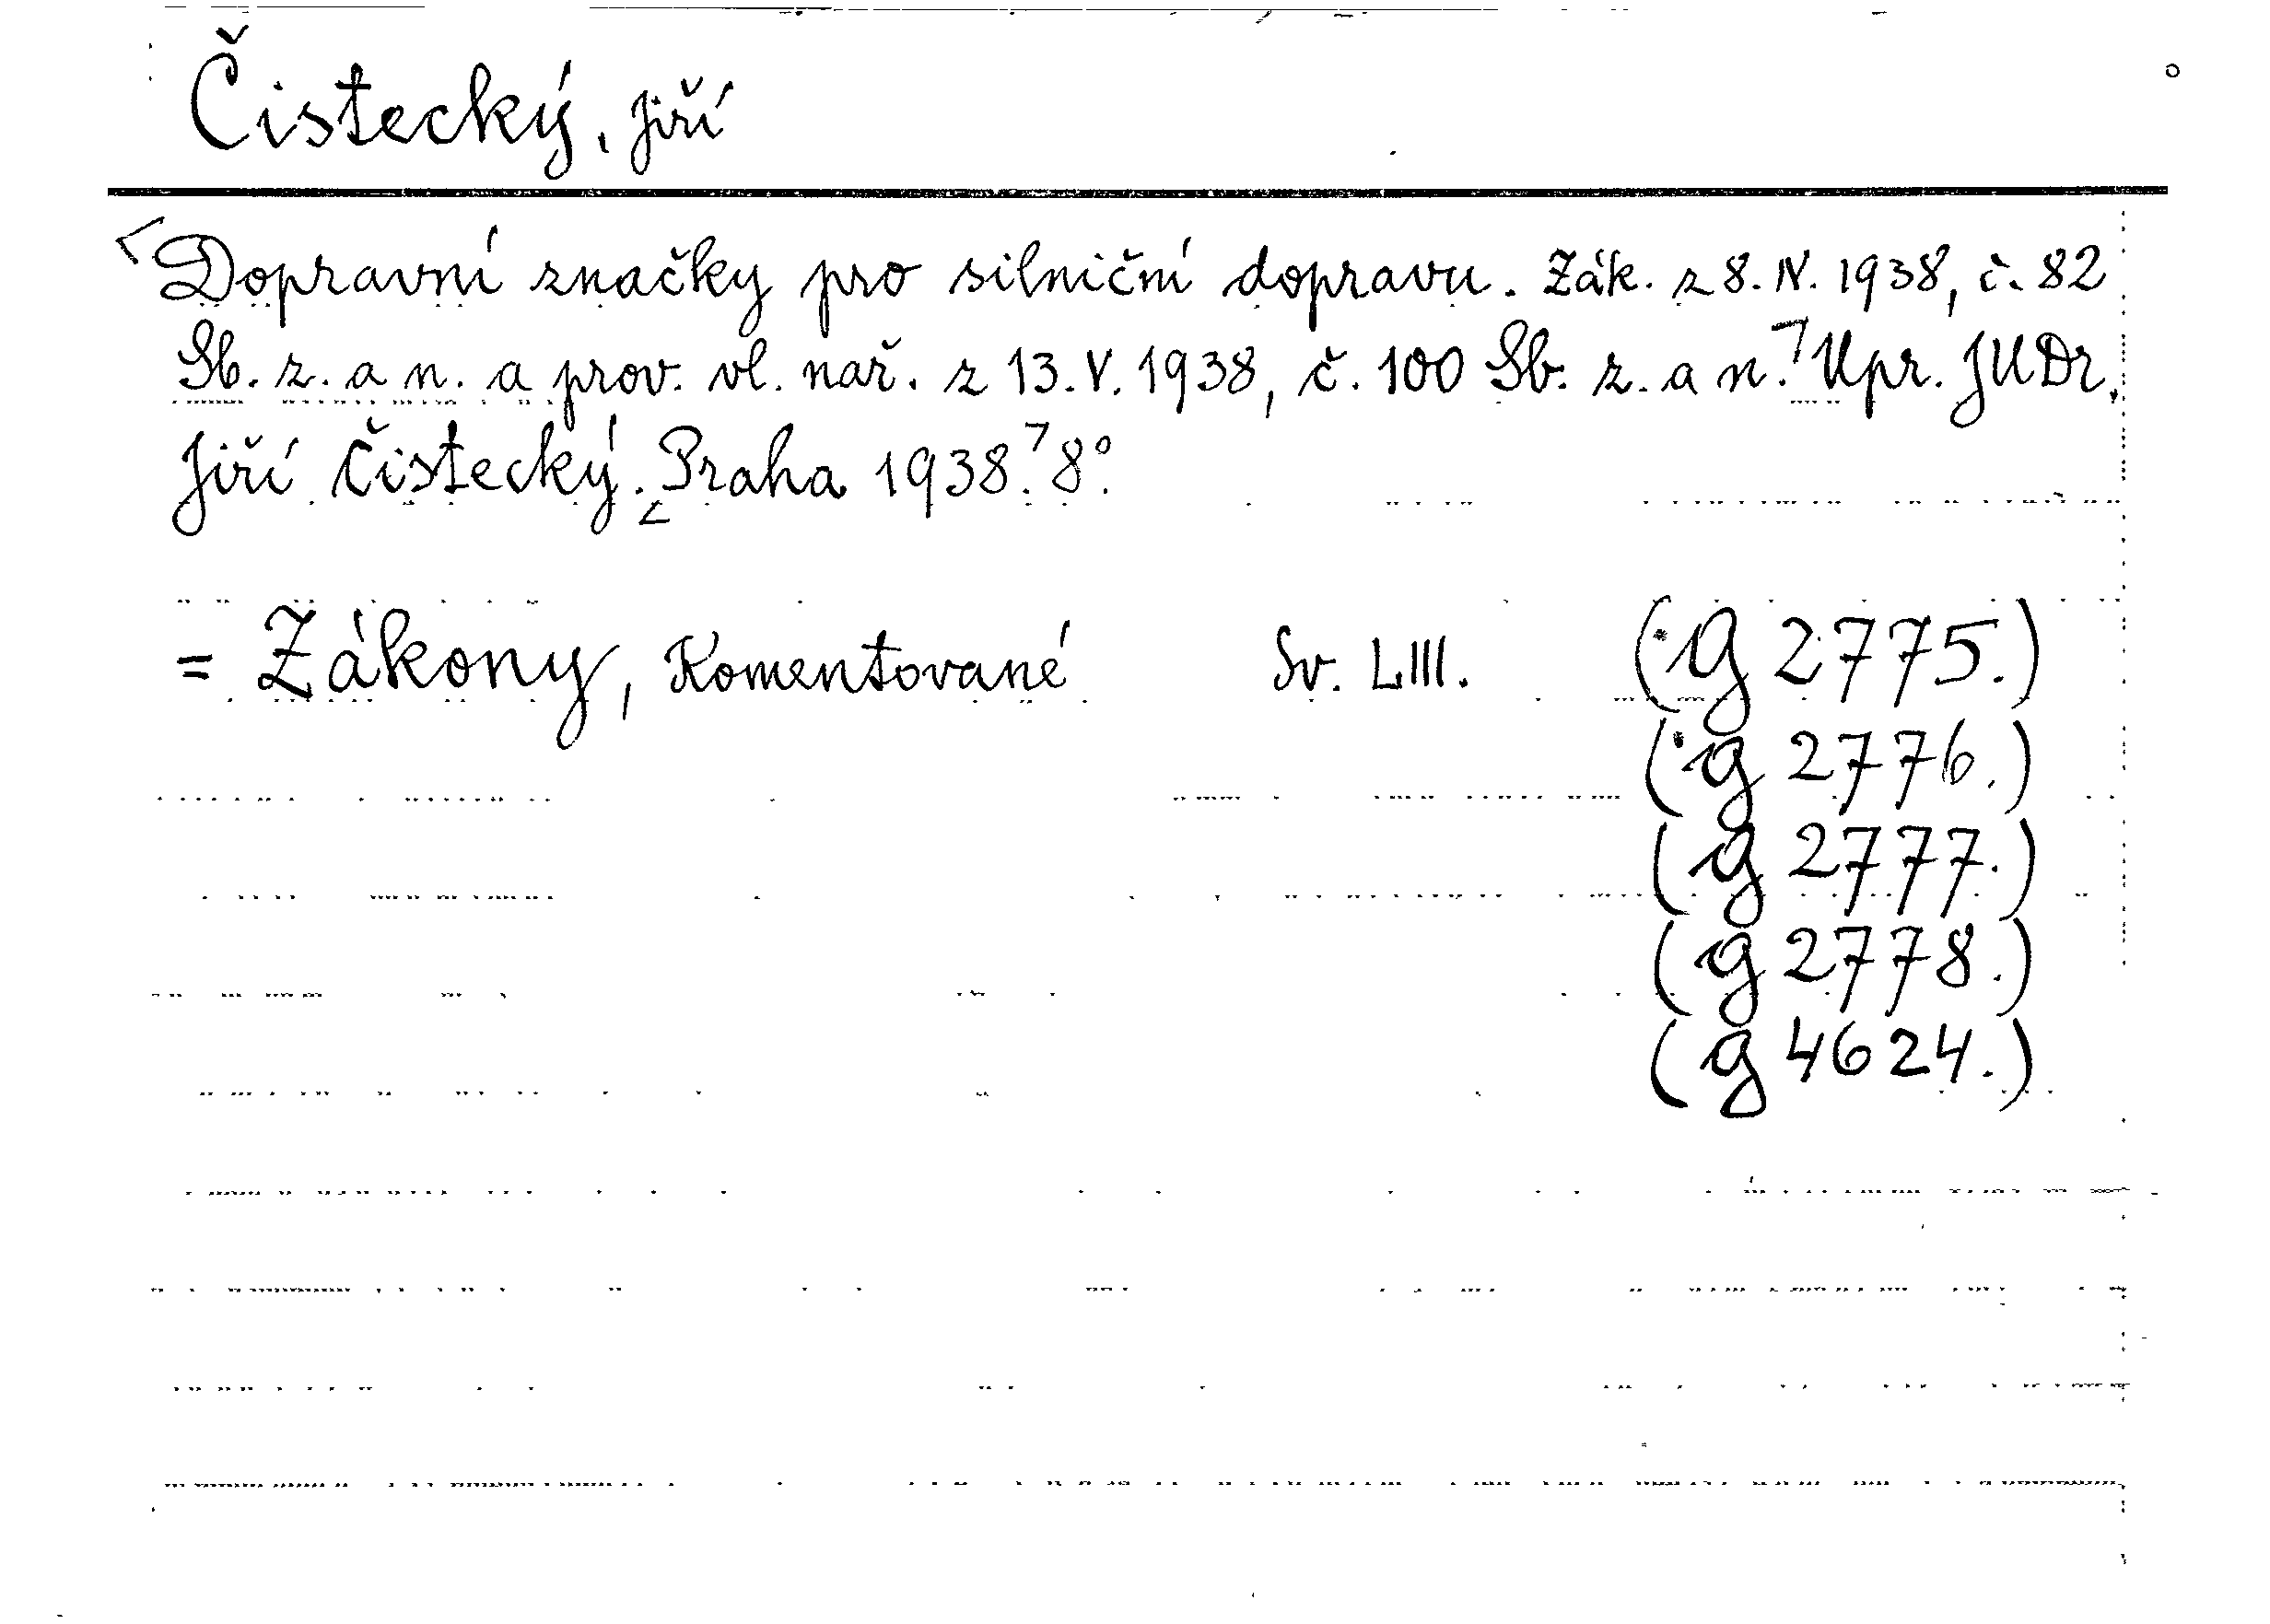 Čistecký, Jiří
Dopravní značky pro silniční dopravu. Zák. z 8. IV. 1938, č. 82
Sb. z. a n. a prov. vl. nař. z 13. V. 1938, č. 100 Sb. z. a n. Upr. JUDr.
Jiří Čistecký. Praha 1938. 8°.
= Zákony, Komentované Sv. LIII. (g 2775.)
(g 2776.)
(g 2777.)
(g 2778.)
(g 4624.)